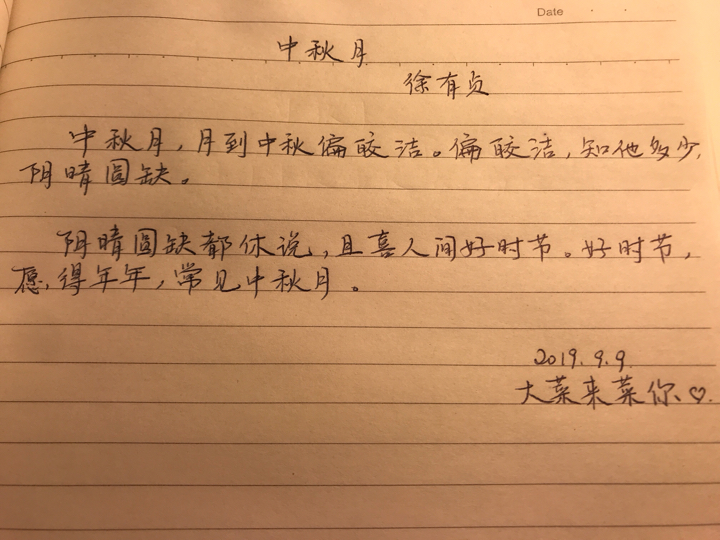 Date
中秋月
徐有贞
中秋月，月到中秋偏皎洁。偏皎洁，知他多少，
阴晴圆缺。
阴晴圆缺都休说，且喜人间好时节。好时节，
愿得年年，常见中秋月。
2019.9.9
大菜来菜你♡.